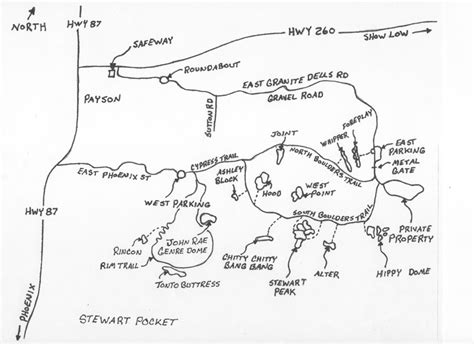 NORTH
HWY 87
SAFEWAY
HWY 260
SHOW LOW
ROUNDABOUT
PAYSON
SUTTON RD
EAST GRANITE DELLS RD
GRAVEL ROAD
JOINT
WHIPPER
FOREPLAY
EAST
PARKING
METAL
GATE
CYPRESS TRAIL
NORTH BOULDERS TRAIL
EAST PHOENIX ST
ASHLEY
BLOCK
HOOD
WEST
POINT
WEST PARKING
SOUTH BOULDERS TRAIL
PRIVATE
PROPERTY
HWY 87
RINCON
RIM TRAIL
JOHN RAE
GENRE DOME
TONTO BUTTRESS
CHITTY CHITTY
BANG BANG
STEWART
PEAK
ALTER
HIPPY DOME
PHOENIX
STEWART POCKET